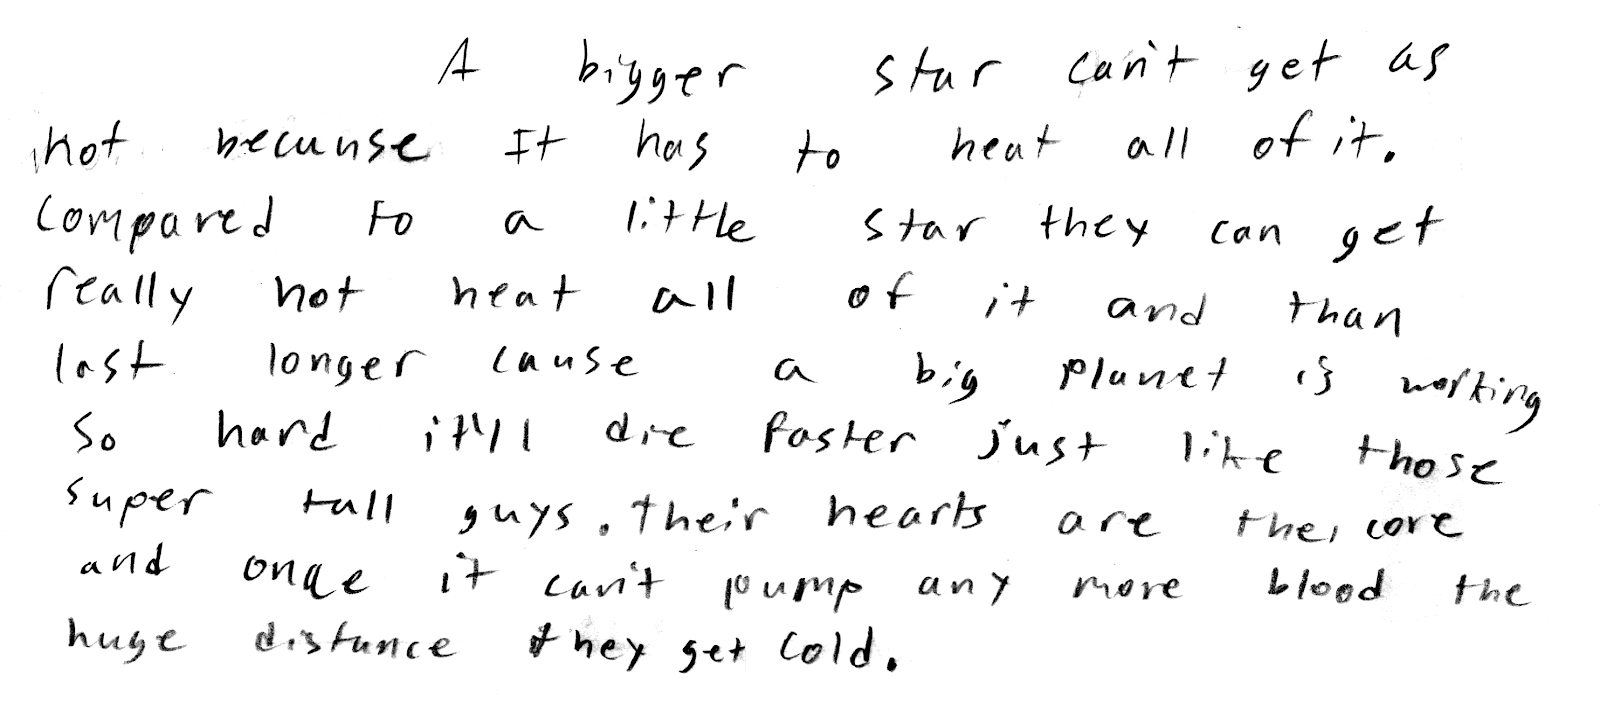 A bigger star can't get as
hot because It has to heat all of it.
Compared to a little star they can get
really hot heat all of it and than
last longer cause a big planet is working
So hard it'll die faster just like those
super tall guys. Their hearts are the, core
and once it can't pump any more blood the
huge distance they get cold.